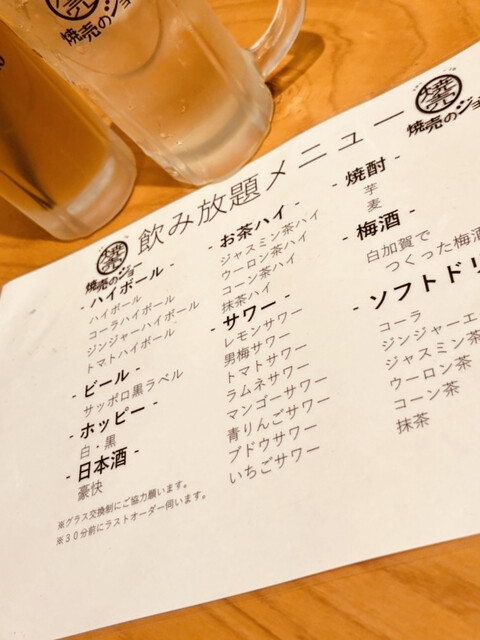 焼売のジョー
焼売
焼売のジョー
飲み放題メニュー
焼売
焼売のジョー
- ハイボール -
ハイボール
コーラハイボール
ジンジャーハイボール
トマトハイボール
- ビール -
サッポロ黒ラベル
- ホッピー -
白・黒
- 日本酒 -
豪快
※グラス交換制にご協力願います。
※30分前にラストオーダー伺います。
- お茶ハイ -
ジャスミン茶ハイ
ウーロン茶ハイ
コーン茶ハイ
抹茶ハイ
- サワー -
レモンサワー
男梅サワー
トマトサワー
ラムネサワー
マンゴーサワー
青りんごサワー
ブドウサワー
いちごサワー
- 焼酎 -
芋
麦
- 梅酒 -
白加賀で
つくった梅酒
- ソフトドリ
コーラ
ジンジャーエ
ジャスミン茶
ウーロン茶
コーン茶
抹茶